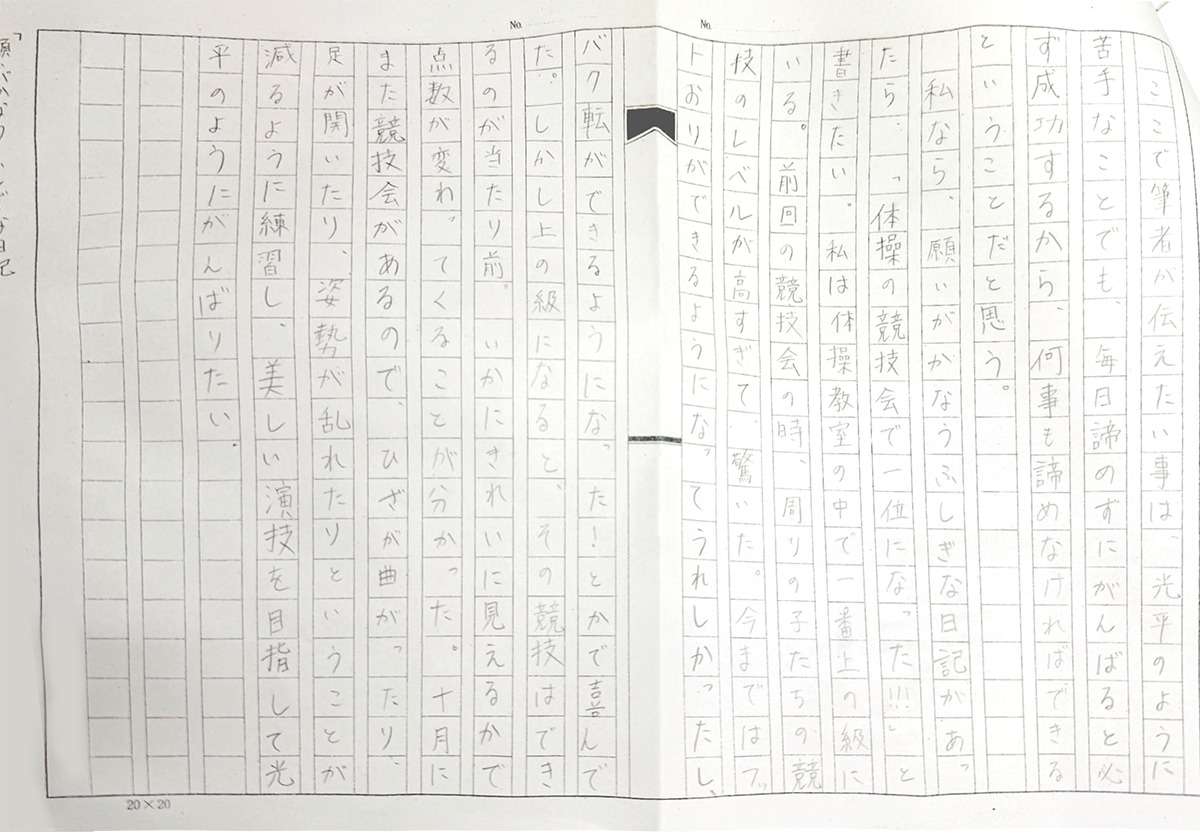 No.
No.
ここで筆者が伝えたい事は、光平のように
苦手なことでも、毎日諦めずにがんばると必
ず成功するから、何事も諦めなければできる
ということだと思う。
私なら、願いがかなうふしぎな日記があっ
たら、「体操の競技会で一位になった!!!」と
書きたい。私は体操教室の中で一番上の級に
いる。前回の競技会の時、周りの子たちの競
技のレベルが高すぎて、驚いた。今まではフッ
トおりができるようになってうれしかったし、
バク転ができるようになった!とかで喜んで
た。しかし上の級になると、その競技はでき
るのが当たり前。いかにきれいに見えるかで
点数が変わってくることが分かった。十月に
また競技会があるので、ひざが曲がったり、
足が開いたり、姿勢が乱れたりということが
減るように練習し、美しい演技を目指して光
平のようにがんばりたい。
20×20